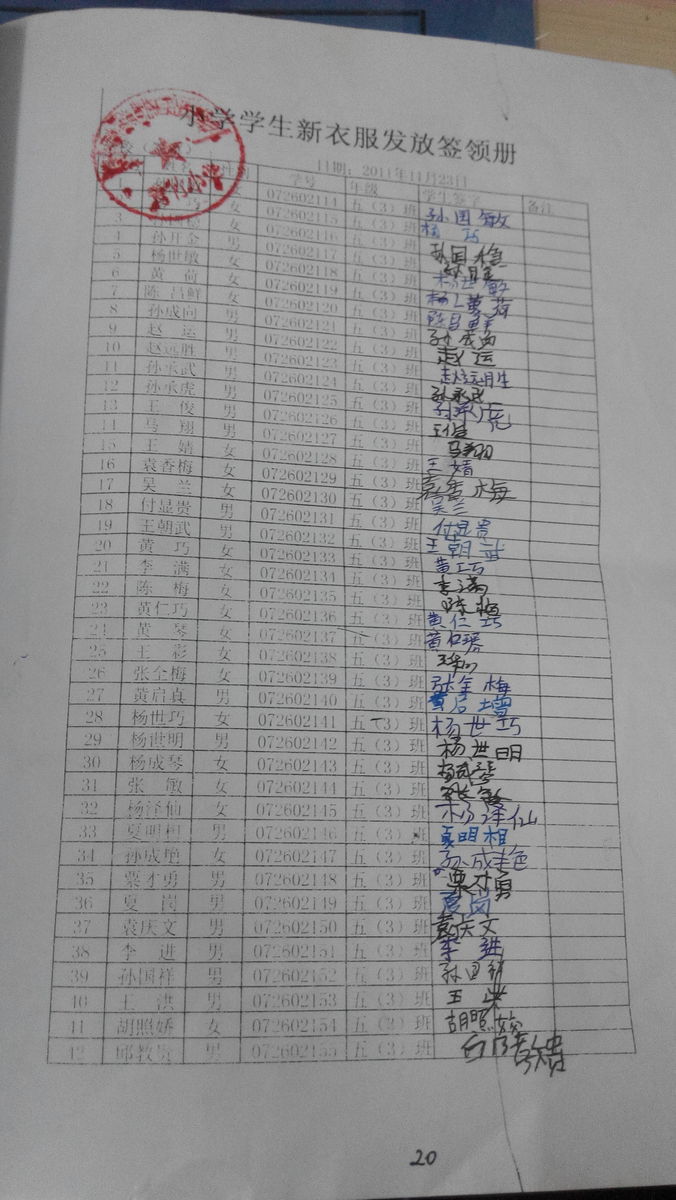 小学学生新衣服发放签领册
日期：2011年11月23日
学号 年级 学生签字 备注
女 072602114 五（3）班 孙国敏
巧 女 072602115 五（3）班 巧
3 072602116 五（3）班 孙国
4 孙开金 男 072602117 五（3）班
5 杨世敏 女 072602118 五（3）班 杨世敏
6 黄荷 女 072602119 五（3）班 黄荷
7 陈昌鲜 女 072602120 五（3）班 陈昌鲜
8 孙成向 男 072602121 五（3）班 孙成向
9 赵运 男 072602122 五（3）班 赵运
10 赵远胜 男 072602123 五（3）班 赵远胜
11 孙承武 男 072602124 五（3）班 孙承武
12 孙承虎 男 072602125 五（3）班 孙承虎
13 王俊 男 072602126 五（3）班 王俊
14 马翔 男 072602127 五（3）班 马翔
15 王婧 女 072602128 五（3）班 王婧
16 袁香梅 女 072602129 五（3）班 袁香梅
17 吴兰 女 072602130 五（3）班 吴兰
18 付显贵 男 072602131 五（3）班 付显贵
19 王朝武 男 072602132 五（3）班 王朝武
20 黄巧 女 072602133 五（3）班 黄巧
21 李满 女 072602134 五（3）班 李满
22 陈梅 女 072602135 五（3）班 陈梅
23 黄仁巧 女 072602136 五（3）班 黄仁巧
24 黄琴 女 072602137 五（3）班
25 王彩 女 072602138 五（3）班
26 张全梅 女 072602139 五（3）班 张全梅
27 黄启真 男 072602140 五（3）班 黄启
28 杨世巧 女 072602141 五（3）班 杨世巧
29 杨世明 男 072602142 五（3）班 杨世明
30 杨成琴 女 072602143 五（3）班 杨成琴
31 张敏 女 072602144 五（3）班 张敏
32 杨泽仙 女 072602145 五（3）班 杨泽仙
33 夏明相 男 072602146 五（3）班 夏明相
34 孙成艳 女 072602147 五（3）班 孙成艳
35 粟才勇 男 072602148 五（3）班 粟才勇
36 夏岗 男 072602149 五（3）班 夏岗
37 袁庆文 男 072602150 五（3）班 袁庆文
38 李进 男 072602151 五（3）班 李进
39 孙国祥 男 072602152 五（3）班 孙国祥
40 王洪 男 072602153 五（3）班 王洪
41 胡照娇 女 072602154 五（3）班 胡照娇
42 邱教贵 男 072602155 五（3）班 邱教贵
20